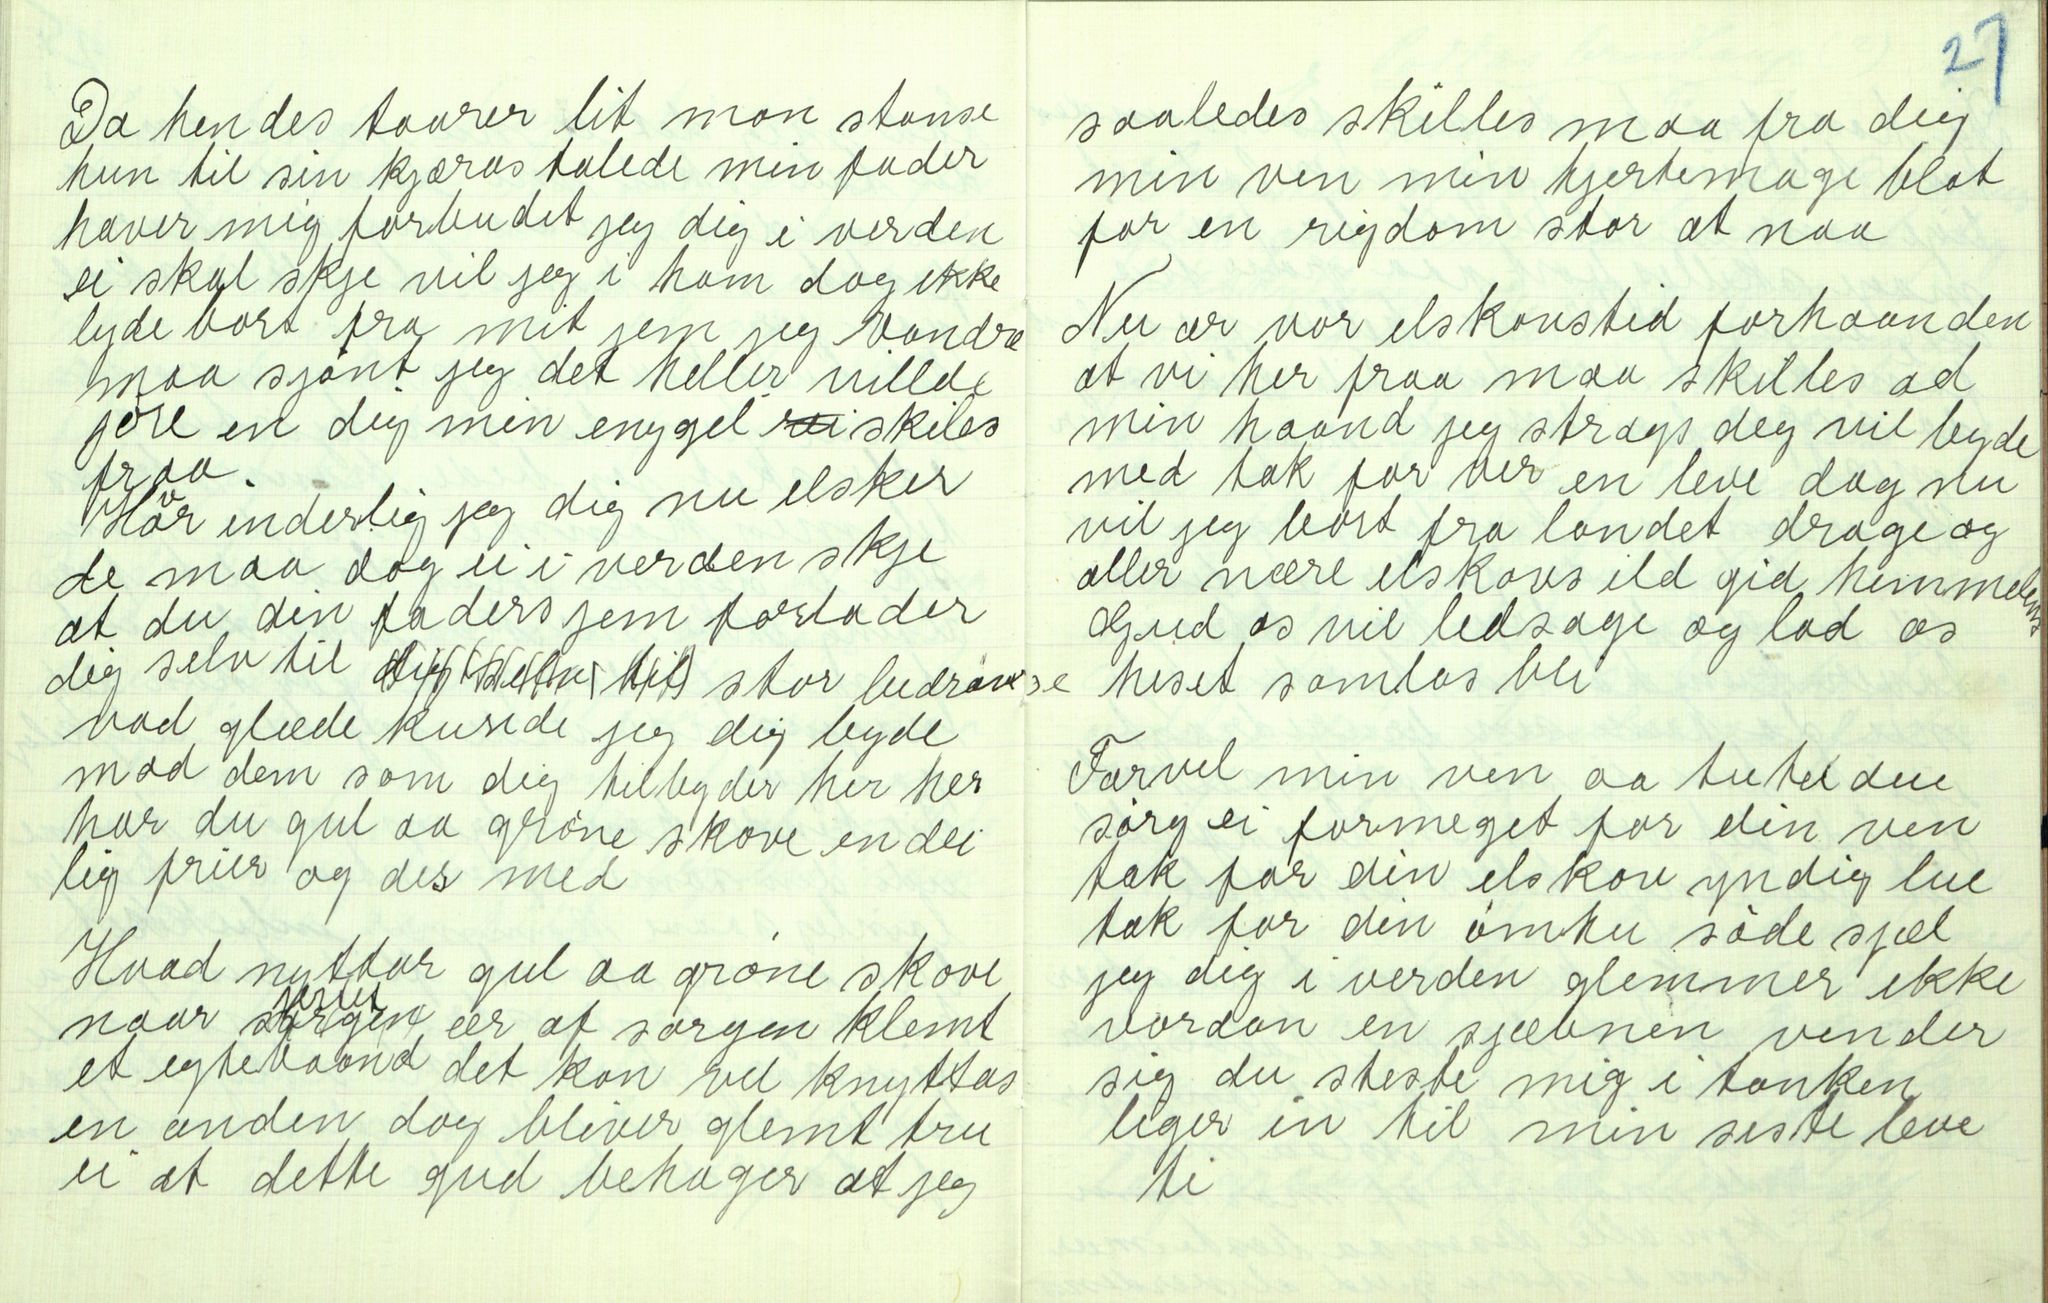 Da hendes taarer lit mon stanse
hun til sin kjæras talede min fader
haver mig forbudet jeg dig i verden
ei skal skje vil jeg i ham dog ikke
lyde bort fra mit jem jeg vandre
maa sjönt jeg det heller villde
jöre en dig min engel skiles
fraa.
Hör inderlig jeg dig nu elsker
de maa dog ei i verden skje
at du din faders jem forlader
dig selv til dig selv til stor bedröuese
vad glæde kunde jeg dig byde
mod dem som dig tilbyder her her
har du gul aa gröne skove en dei
lig frier og des med
Hvad nyttur gul aa gröne skove
naar sörgen jertet er af sorgen klemt
et egtebaand det kan vel knyttas
en anden dag bliver glemt tru
ei at dette gud behager at jeg
27
saaledes skilles maa fra dig
min ven min hjertemage blot
for en rigdom stor at naa
Nu ær vor elskovstid forhaanden
at vi her fraa maa skilles ad
min haand jeg strags deg vil byde
med tak for ver en leve dag nu
vil jeg bort fra landet drage og
aller nære elskovs ild gid himmelens
Gud os vil ledsage og lad os
heset samlas bli
Farvel min ven aa tutel due
sörg ei formeget for din ven
tak for din elskov yndig lue
tak for din ömhu söde sjæl
jeg dig i verden glemmer ikke
vordan en sjæbnen vender
sig du steste mig i tanken
liger in til min siste leve
ti